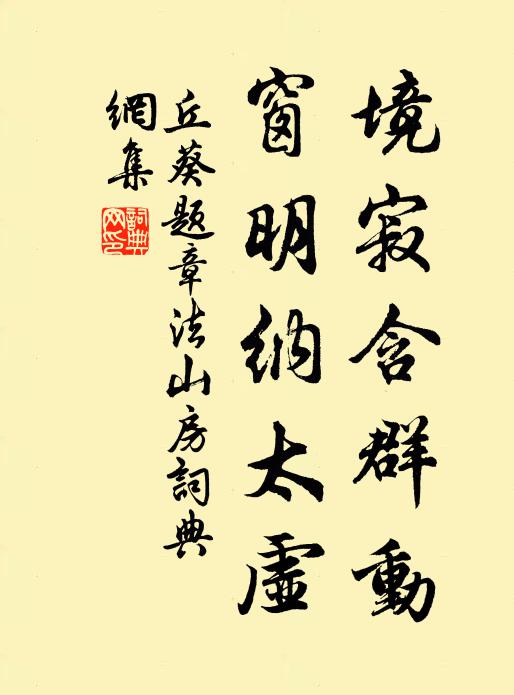 境寂含群動
窗明納太虛
丘葵題章法山房詞典
網集
詞典網印